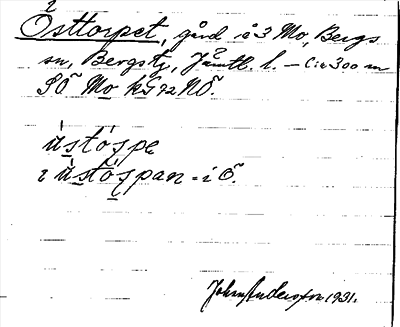 2
Östtorpet, gård i å 3 Mo, Bergs
sn, Bergs tg, Jämtl. l. – C:a 300 m
SÖ Mo kG 72 NÖ.
ùstóspe
ı ùstóspan = i Ö.
John Andersson 1931.